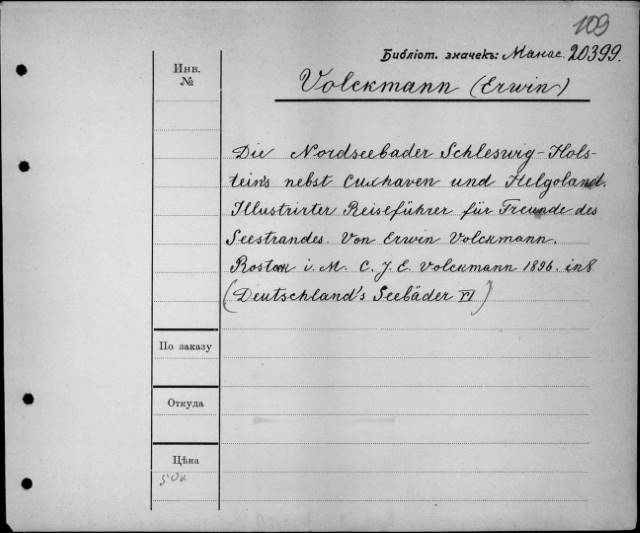 109
Библіот. значекъ: Манас. 20399.
Инв.
№
Volckmann (Erwin)
Die Nordseebader Schleswig-Hols-
tein's nebst Cuxhaven und Helgoland.
Illustrirter Reiseführer für Freunde des
Seestrandes. Von Erwin Volckmann.
Rostock i. M. C. J. E. Volckmann 1896. in 8
(Deutschland's Seebäder VI)
По заказу
Откуда
Цѣна
50